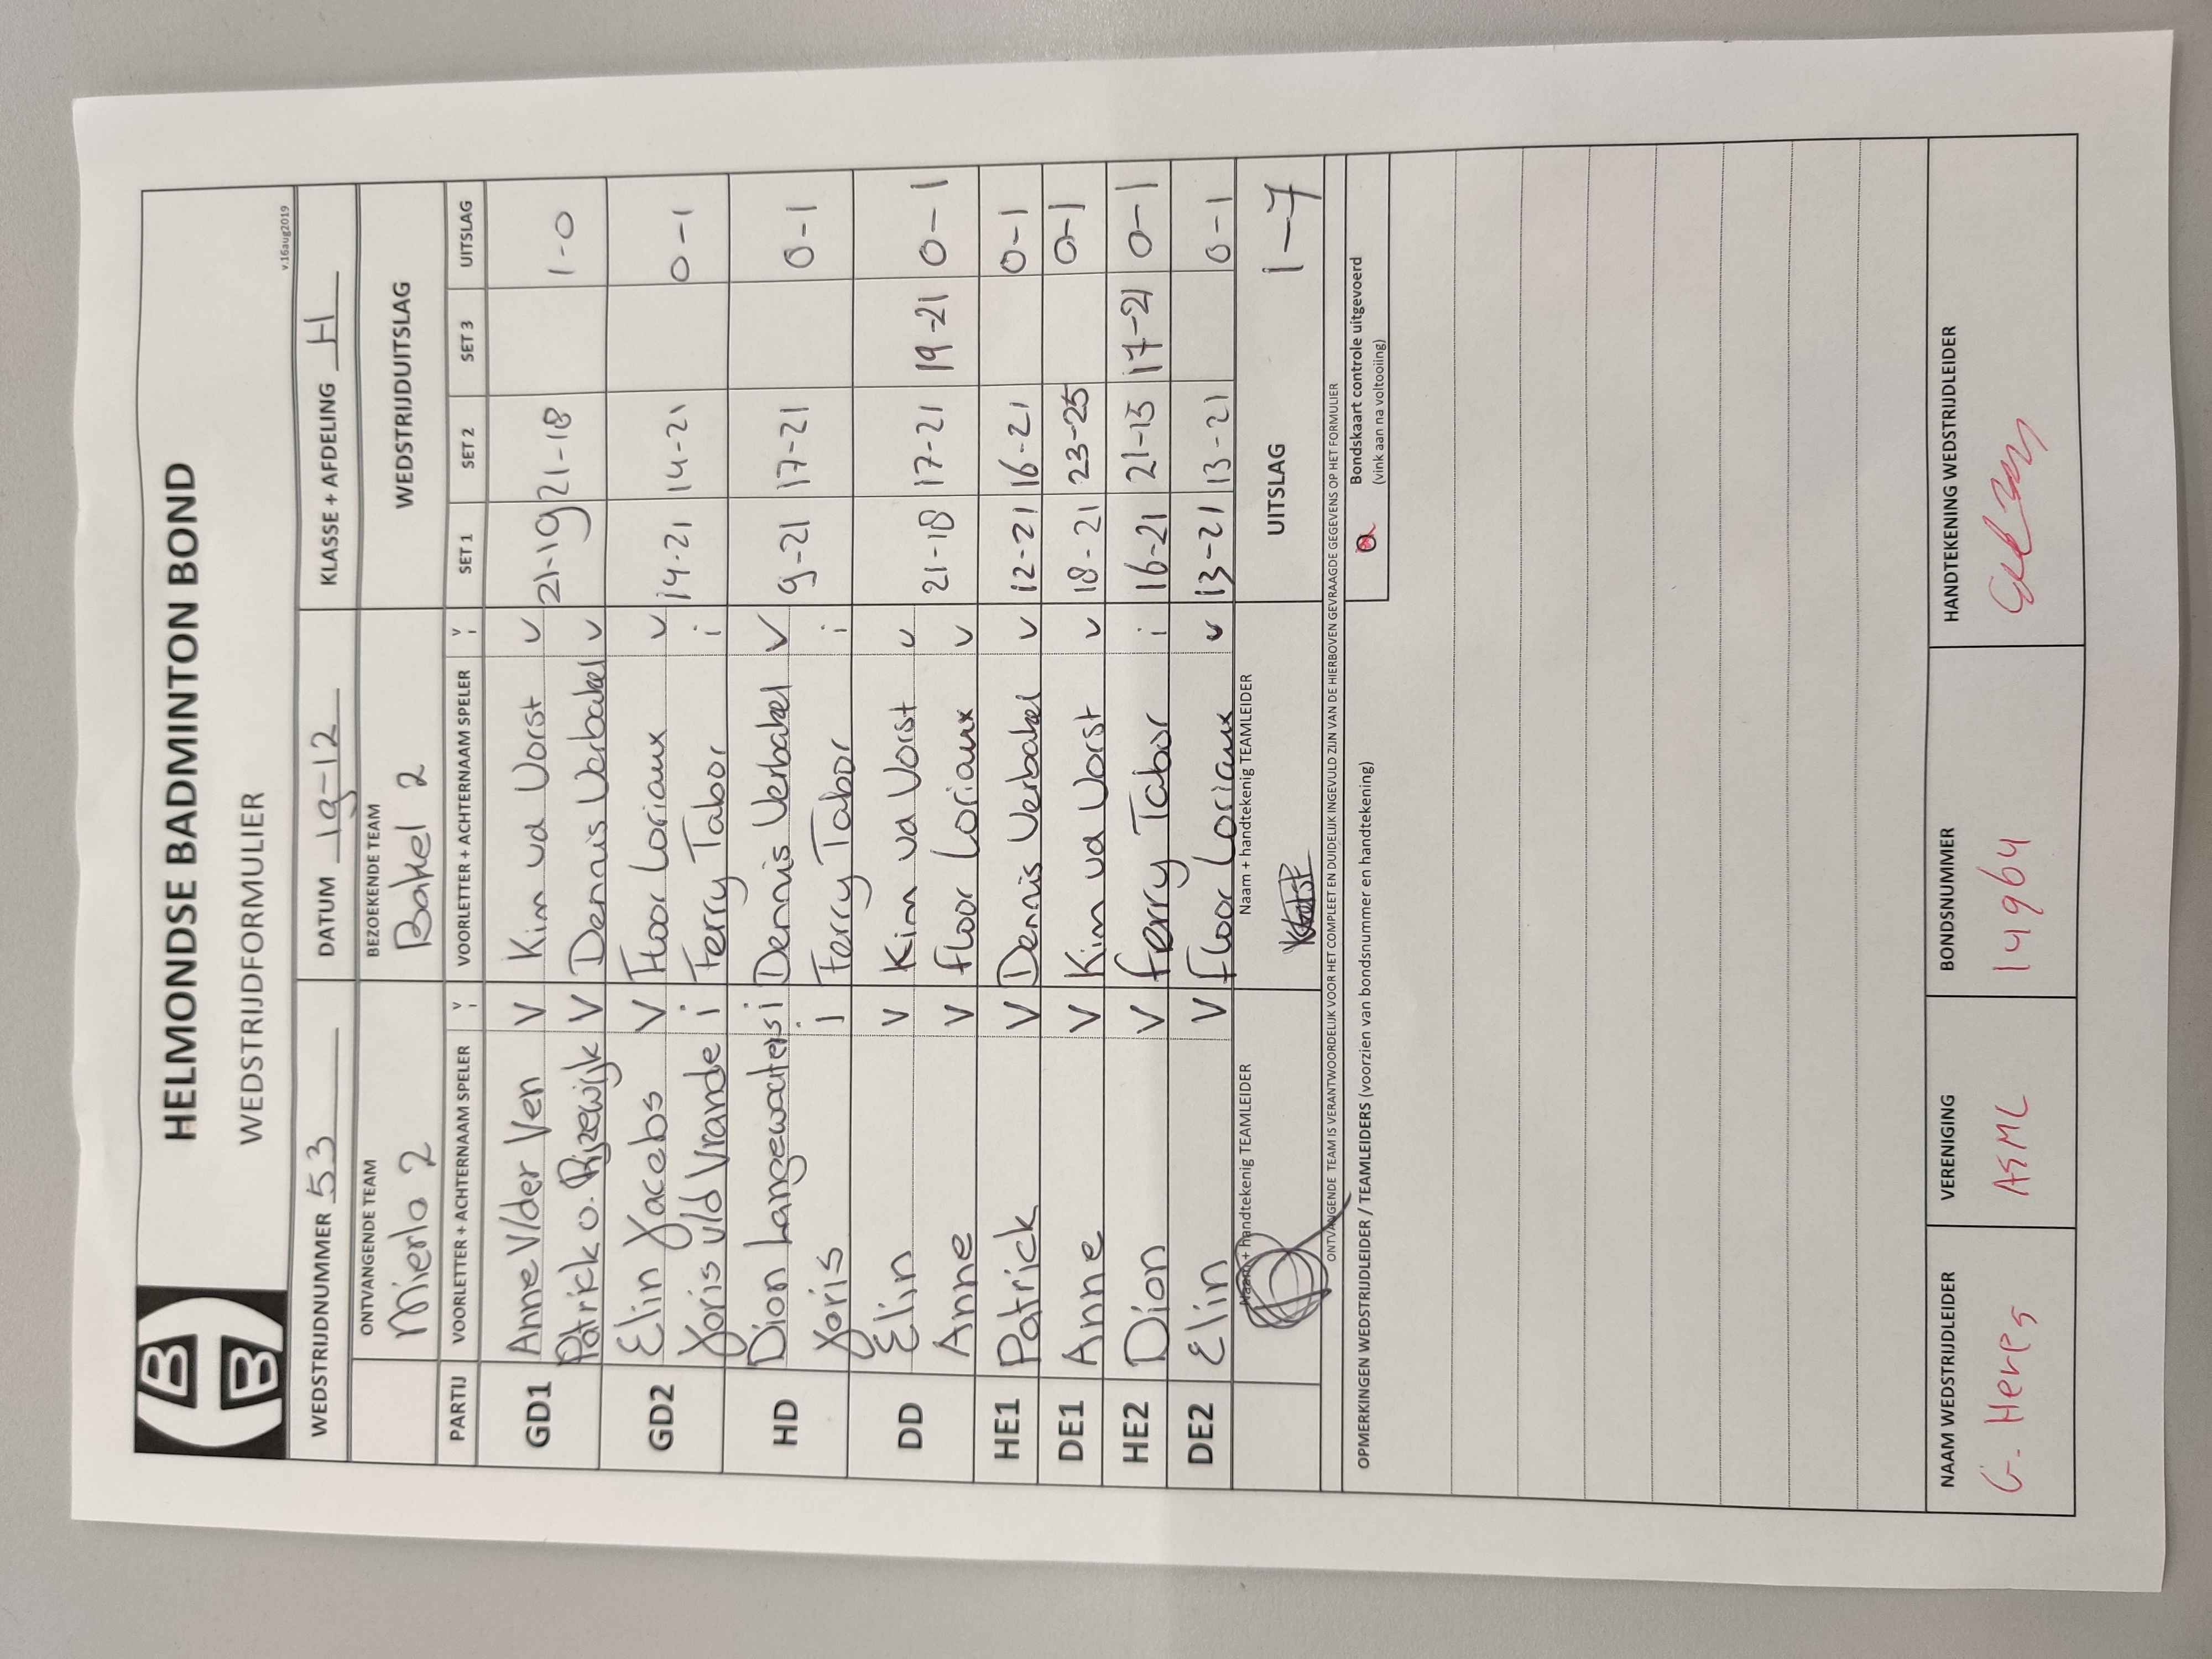 HELMONDSE BADMINTON BOND
WEDSTRIJDFORMULIER
v.16aug2019
WEDSTRIJDNUMMER 53 DATUM 19-12 KLASSE + AFDELING H
ONTVANGENDE TEAM BEZOEKENDE TEAM WEDSTRIJDUITSLAG
Mierlo 2 Bakel 2
PARTIJ VOORLETTER + ACHTERNAAM SPELER V i VOORLETTER + ACHTERNAAM SPELER V i SET 1 SET 2 SET 3 UITSLAG
GD1 Anne V/der Ven V Kim vd Vorst v 21-19 21-18 1-0
Patrick v. Rijzewijk V Dennis Verbakel v
GD2 Elin Jacobs V Floor Loriaux v 14-21 14-21 0-1
Joris v/d Vrande i Ferry Tabor i
HD Dion Langewouters i Dennis Verbakel V 9-21 17-21 0-1
Joris i Ferry Tabor i
DD Elin V Kim vd Vorst v 21-18 17-21 19-21 0-1
Anne V Floor Loriaux v
HE1 Patrick V Dennis Verbakel v 12-21 16-21 0-1
DE1 Anne V Kim vd Vorst v 18-21 23-25 0-1
HE2 Dion V Ferry Tabor i 16-21 21-15 17-21 0-1
DE2 Elin V Floor Loriaux v 13-21 13-21 0-1
Naam + handtekenig TEAMLEIDER Naam + handtekenig TEAMLEIDER UITSLAG 1-7
ONTVANGENDE TEAM IS VERANTWOORDELIJK VOOR HET COMPLEET EN DUIDELIJK INGEVULD ZIJN VAN DE HIERBOVEN GEVRAAGDE GEGEVENS OP HET FORMULIER
OPMERKINGEN WEDSTRIJDLEIDER / TEAMLEIDERS (voorzien van bondsnummer en handtekening)
Bondskaart controle uitgevoerd
(vink aan na voltooiing)
NAAM WEDSTRIJDLEIDER VERENIGING BONDSNUMMER HANDTEKENING WEDSTRIJDLEIDER
G. Heres ASML 14964